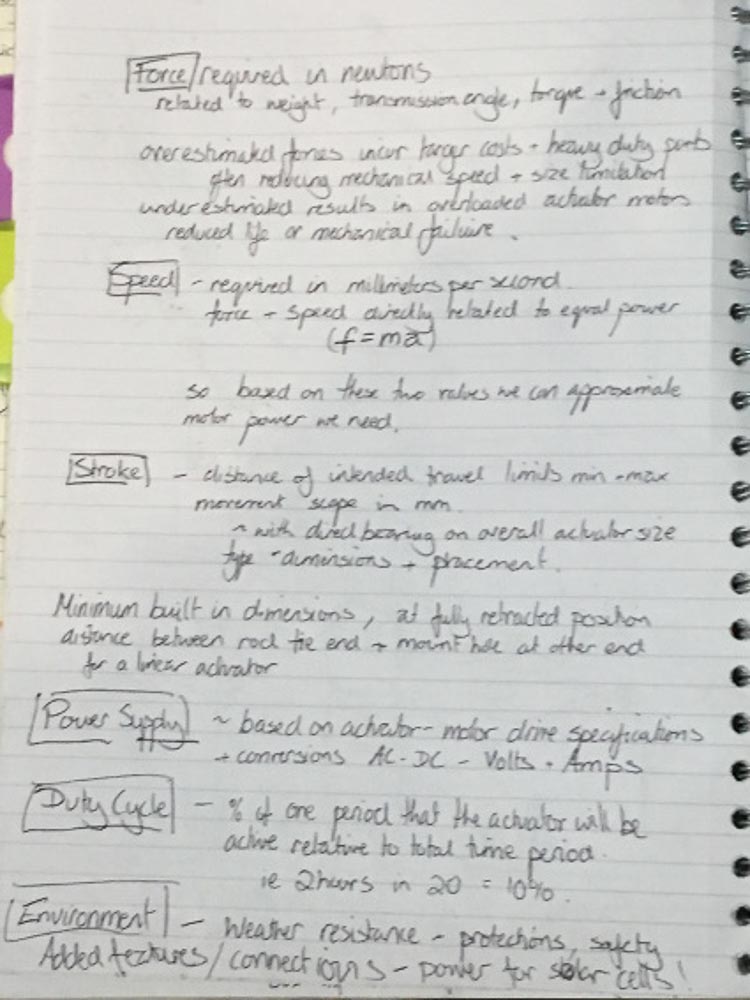 Force / required in newtons
related to weight, transmission angle, torque + friction
overestimated forces incur larger costs + heavy duty parts
often reducing mechanical speed + size limitation
underestimated results in overloaded actuator motors
reduced life or mechanical failure.
Speed - required in millimeters per second.
force + speed directly related to equal power
(f=ma)
so based on these two values we can approximate
motor power we need.
Stroke - distance of intended travel limits min - max
movement scope in mm.
~ with direct bearing on overall actuator size
type - dimensions + placement.
Minimum built in dimensions, at fully retracted position
distance between rod tie end + mount hole at other end
for a linear actuator
Power Supply ~ based on actuator - motor drive specifications
+ conversions AC - DC - Volts + Amps
Duty Cycle - % of one period that the actuator will be
active relative to total time period.
ie 2hours in 20 = 10%.
Environment - Weather resistance - protections, safety
Added features / connections - power for solar cells!